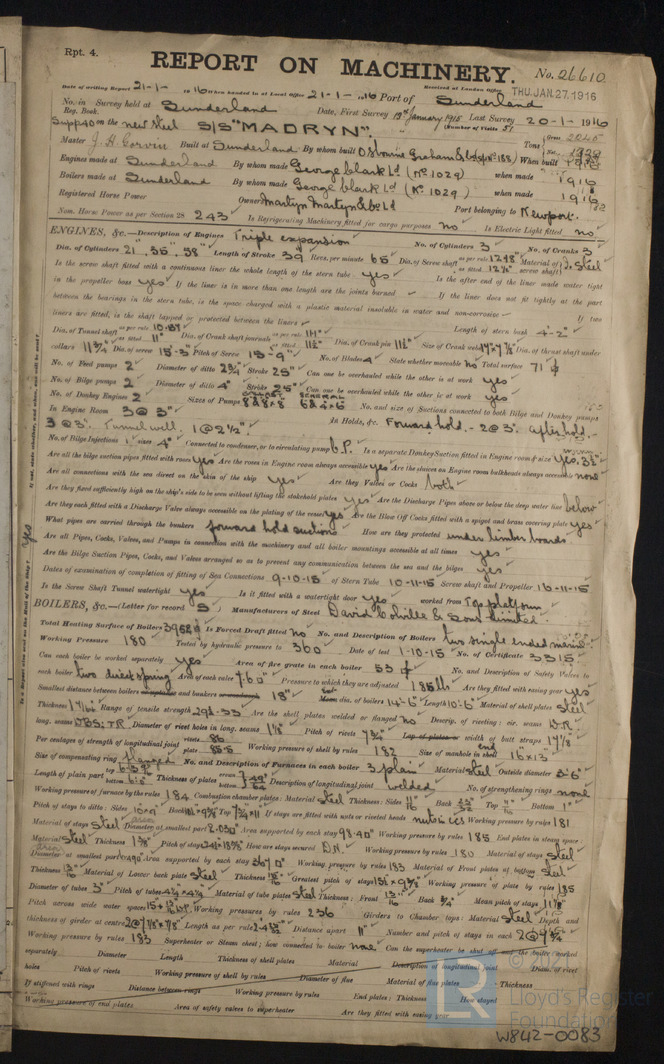 Rpt. 4.
REPORT ON MACHINERY. No. 26610
Received at London Office THU. JAN. 27. 1916
Date of writing Report 21-1- 1916 When handed in at Local Office 21-1- 1916 Port of Sunderland
No. in Survey held at Sunderland Date, First Survey 19th January 1915 Last Survey 20-1-1916
Reg. Book. (Number of Visits 51
Supp 40 on the new steel S/S "MADRYN".
Master Built at Sunderland By whom built Osbourne Graham & Co Ld (No 188) When built 1916
Engines made at Sunderland By whom made George Clark Ld (No 1029) when made 1916
Boilers made at Sunderland By whom made George Clark Ld (No 1029) when made 1916
Registered Horse Power Owners Martyn Martyn & Co Ld Port belonging to Newport.
Nom. Horse Power as per Section 28 243 Is Refrigerating Machinery fitted for cargo purposes no Is Electric Light fitted no
ENGINES, &c.—Description of Engines Triple expansion No. of Cylinders 3 No. of Cranks 3
Dia. of Cylinders 21", 35", 58" Length of Stroke 39 Revs. per minute 65 Dia. of Screw shaft as per rule 12.48 as fitted 12 7/8 Material of screw shaft Steel
Is the screw shaft fitted with a continuous liner the whole length of the stern tube yes Is the after end of the liner made water tight
in the propeller boss yes If the liner is in more than one length are the joints burned If the liner does not fit tightly at the part
between the bearings in the stern tube, is the space charged with a plastic material insoluble in water and non-corrosive If two
liners are fitted, is the shaft lapped or protected between the liners Length of stern bush 4'-2"
Dia. of Tunnel shaft as fitted 11" Dia. of Crank shaft journals as fitted 11½" Dia. of Crank pin 11½" Size of Crank webs Dia. of thrust shaft under
collars 11¾" Dia. of screw 15'-3" Pitch of Screw 15'-9" No. of Blades 4 State whether moveable no Total surface 71
No. of Feed pumps 2 Diameter of ditto 2¾" Stroke 25" Can one be overhauled while the other is at work yes
No. of Bilge pumps 2 Diameter of ditto 4" Stroke 25" Can one be overhauled while the other is at work yes
No. of Donkey Engines 2 Sizes of Pumps BALLAST 8&8×8 GENERAL 6&4×6 No. and size of Suctions connected to both Bilge and Donkey pumps
In Engine Room 3 @ 3" In Holds, &c. Forward hold. - 2 @ 3". After hold.
3 @ 3". Tunnel well. 1 @ 2½".
No. of Bilge Injections 1 sizes 4" Connected to condenser, or to circulating pump C.P. Is a separate Donkey Suction fitted in Engine room & size yes. 3½"
Are all the bilge suction pipes fitted with roses yes Are the roses in Engine room always accessible yes Are the sluices on Engine room bulkheads always accessible none
Are all connections with the sea direct on the skin of the ship yes Are they Valves or Cocks both
Are they fixed sufficiently high on the ship's side to be seen without lifting the stokehold plates yes Are the Discharge Pipes above or below the deep water line below
Are they each fitted with a Discharge Valve always accessible on the plating of the vessel yes Are the Blow Off Cocks fitted with a spigot and brass covering plate yes
What pipes are carried through the bunkers forward hold suctions How are they protected under limber boards.
Are all Pipes, Cocks, Valves, and Pumps in connection with the machinery and all boiler mountings accessible at all times yes
Are the Bilge Suction Pipes, Cocks, and Valves arranged so as to prevent any communication between the sea and the bilges yes
Dates of examination of completion of fitting of Sea Connections 9-10-15 of Stern Tube 10-11-15 Screw shaft and Propeller 16-11-15
Is the Screw Shaft Tunnel watertight yes Is it fitted with a watertight door yes worked from Top platform
BOILERS, &c.—(Letter for record S) Manufacturers of Steel David Colville & Sons Limited.
Total Heating Surface of Boilers 3952 Is Forced Draft fitted no No. and Description of Boilers two single ended marine
Working Pressure 180 Tested by hydraulic pressure to 360 Date of test 1-10-15 No. of Certificate 3315
Can each boiler be worked separately yes Area of fire grate in each boiler 53 No. and Description of Safety Valves to
each boiler two direct spring Area of each valve 7.65 Pressure to which they are adjusted 185 lbs Are they fitted with easing gear yes
Smallest distance between boilers and bunkers 18" dia. of boilers 14'-6" Length 10'-6" Material of shell plates steel
Thickness Range of tensile strength Are the shell plates welded or flanged no Descrip. of riveting: cir. seams D.R.
long. seams DBS; TR Diameter of rivet holes in long. seams 1 1/8" Pitch of rivets 7¾" width of butt straps 17 1/8
Per centages of strength of longitudinal joint rivets 86 plate 85.5 Working pressure of shell by rules 182 Size of manhole in shell end 16"×13"
Size of compensating ring flanged No. and Description of Furnaces in each boiler 3 plain Material steel Outside diameter 3'-6"
Length of plain part Thickness of plates Description of longitudinal joint welded No. of strengthening rings none
Working pressure of furnace by the rules 184 Combustion chamber plates: Material steel Thickness: Sides Back Top Bottom 1"
Pitch of stays to ditto: Sides Back Top If stays are fitted with nuts or riveted heads nuts Working pressure by rules 181
Material of stays steel Diameter at smallest part 2.030" Area supported by each stay 98.40 Working pressure by rules 185 End plates in steam space:
Material steel Thickness Pitch of stays How are stays secured D.N. Working pressure by rules 180 Material of stays steel
Diameter at smallest part Area supported by each stay 367.0" Working pressure by rules 183 Material of Front plates at bottom steel
Thickness Material of Lower back plate steel Thickness Greatest pitch of stays Working pressure of plate by rules 185
Diameter of tubes 3" Pitch of tubes 4¼"×4¼" Material of tube plates steel Thickness: Front 13/16" Back ¾" Mean pitch of stays
Pitch across wide water spaces Working pressures by rules 236 Girders to Chamber tops: Material steel Depth and
thickness of girder at centre Length as per rule Distance apart 11" Number and pitch of stays in each 2 @ 7¾"
Working pressure by rules 183 Superheater or Steam chest; how connected to boiler none Can the superheater be shut off and the boiler worked
separately Diameter Length Thickness of shell plates Material Description of longitudinal joint Diam. of rivet
holes Pitch of rivets Working pressure of shell by rules Diameter of flue Material of flue plates Thickness
If stiffened with rings Distance between rings Working pressure by rules End plates: Thickness How stayed
Working pressure of end plates Area of safety valves to superheater Are they fitted with easing gear
LR
© Lloyd's Register Foundation
W842-0083